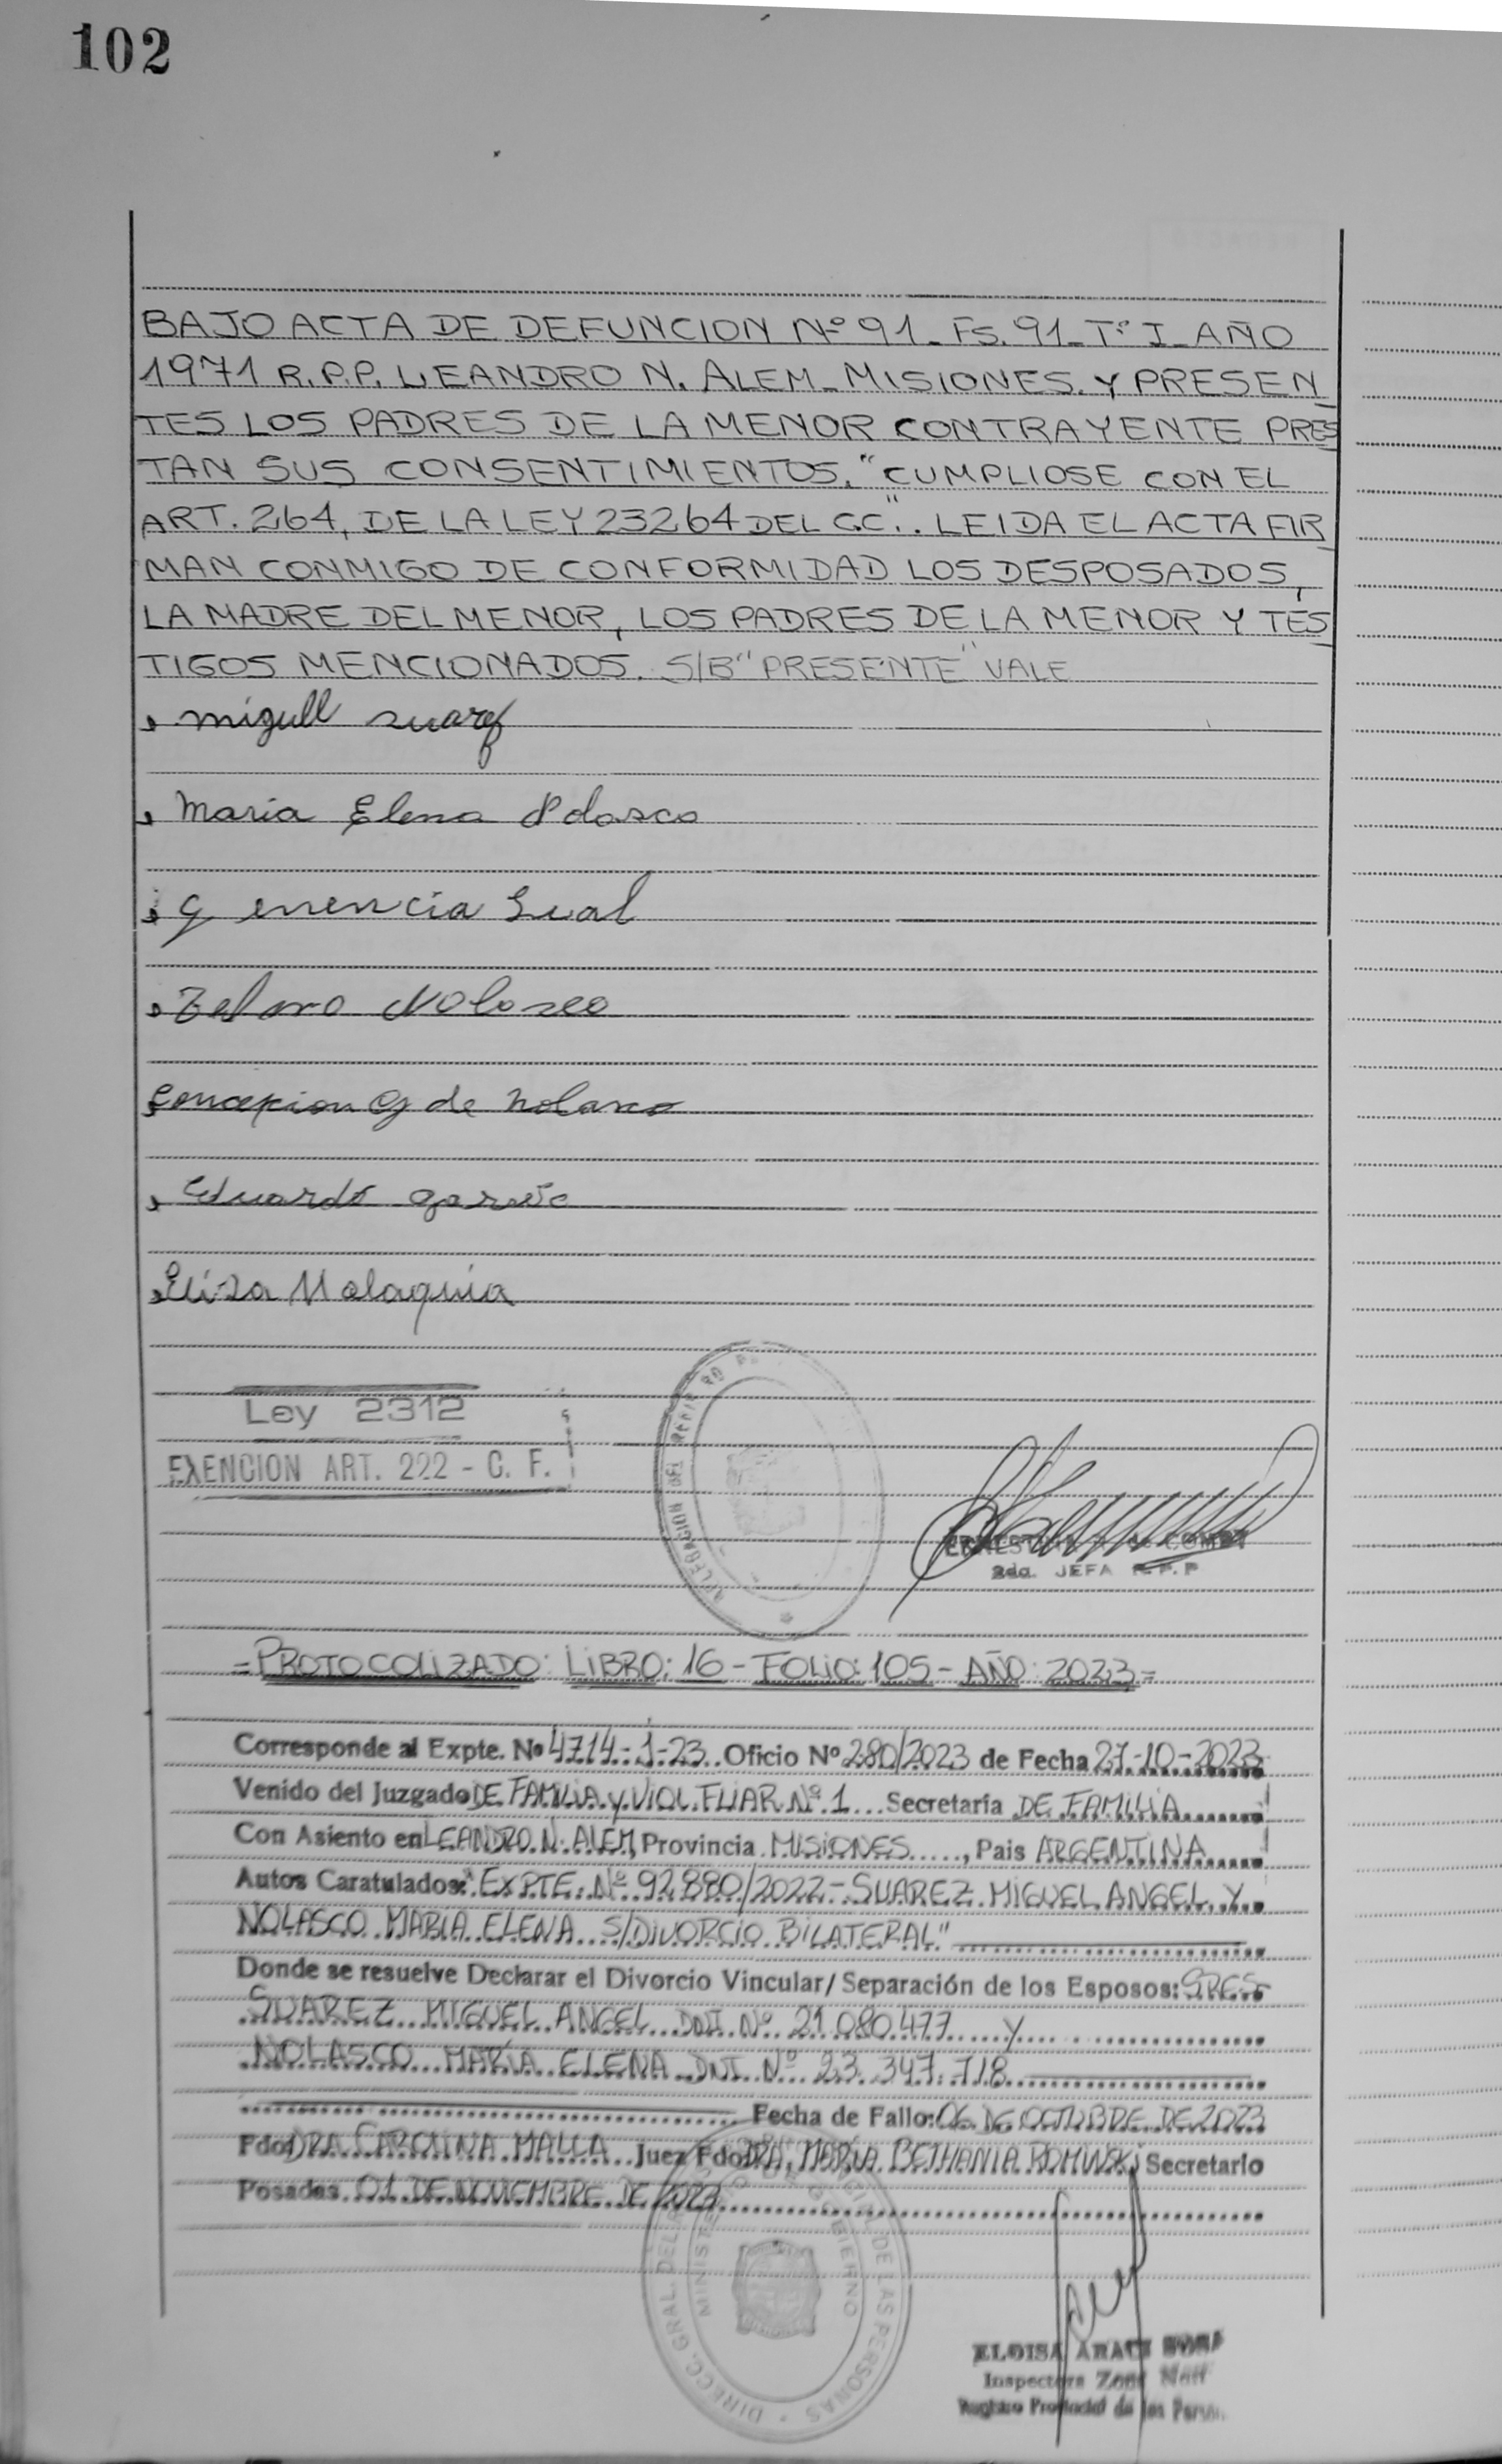 102
BAJO ACTA DE DEFUNCION Nº 91_ Fs. 91_ Tº I_ AÑO
1971 R.P.P. LEANDRO N. ALEM_ MISIONES. Y PRESEN_
TES LOS PADRES DE LA MENOR CONTRAYENTE PRES
TAN SUS CONSENTIMIENTOS. "CUMPLIOSE CON EL
ART. 264, DE LA LEY 23264 DEL C.C.". LEIDA EL ACTA FIR_
MAN CONMIGO DE CONFORMIDAD LOS DESPOSADOS,
LA MADRE DEL MENOR, LOS PADRES DE LA MENOR Y TES_
TIGOS MENCIONADOS. S/B "PRESENTE" VALE
Maria Elena Nolasco
Nolasco
Concepcion G de Nolasco
Eduardo
Elisa Malaquia
Ley 2312
EXENCION ART. 222 - C. F.
2da. JEFA R.P.P
=PROTOCOLIZADO: LIBRO: 16 - FOLIO: 105 - AÑO: 2023=
Corresponde al Expte. Nº 4714-1-23 Oficio Nº 280/2023 de Fecha 27-10-2023
Venido del Juzgado DE FAMILIA Y VIOL. FLIAR Nº 1 Secretaría DE FAMILIA
Con Asiento en LEANDRO N. ALEM, Provincia MISIONES, Pais ARGENTINA
Autos Caratulados: "EXPTE. Nº 92880/2022 - SUAREZ MIGUEL ANGEL Y
NOLASCO MARIA ELENA S/DIVORCIO BILATERAL"
Donde se resuelve Declarar el Divorcio Vincular/Separación de los Esposos: SRES.
SUAREZ MIGUEL ANGEL DNI Nº 21.080.477 Y
NOLASCO MARÍA ELENA DNI Nº 23.347.718
Fecha de Fallo: 06 DE OCTUBRE DE 2023
Fdo: DRA CAROLINA MALLA Juez Fdo: DRA. MARÍA BETHANIA Secretario
Posadas 01 DE NOVIEMBRE DE 2023
DIRECC. GRAL. DEL DE LAS PERSONAS
MINISTERIO DE GOBIERNO
ELOISA
Inspectora Zona
Registro Provincial de las